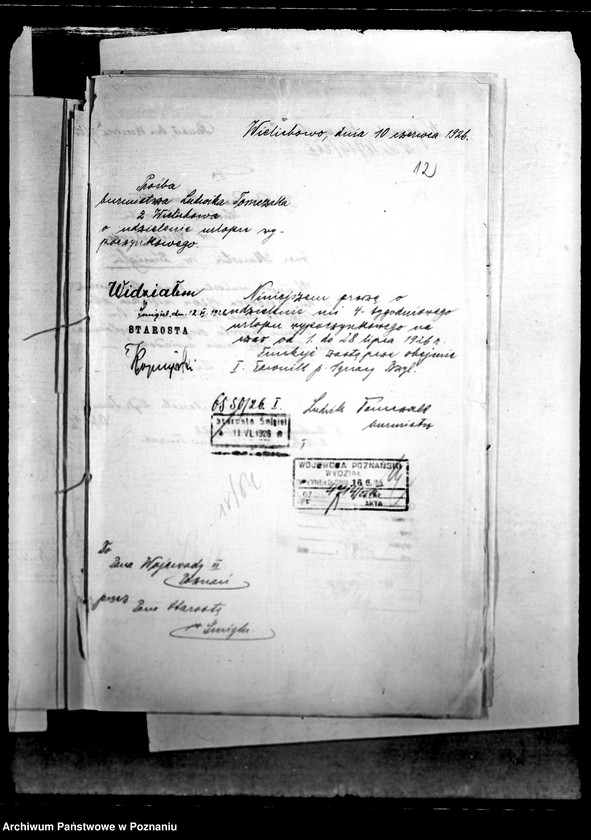 Wielichowo, dnia 10 czerwca 1926.
12
Prośba
burmistrza Ludwika Tomczaka
z Wielichowa
o udzielenie urlopu wy-
poczynkowego.
Widziałem
Śmigiel, dn. 12. VI.
STAROSTA
Niniejszem proszę o
udzielenie mi 4-tygodniowego
urlopu wypoczynkowego na
czas od 1. do 28 lipca 1926 r.
Funkcje zastępcze obejmie
I. Ławnik p. Ignacy
6850/26. I.
Starosta Śmigiel
11. VI. 1926
Ludwik Tomczak
burmistrz
WOJEWODA POZNAŃSKI
WYDZIAŁ
16.6.
AKTA
Do
Pana Wojewody
Poznań
przez
Pana Starostę
w Śmiglu.
Archiwum Państwowe w Poznaniu